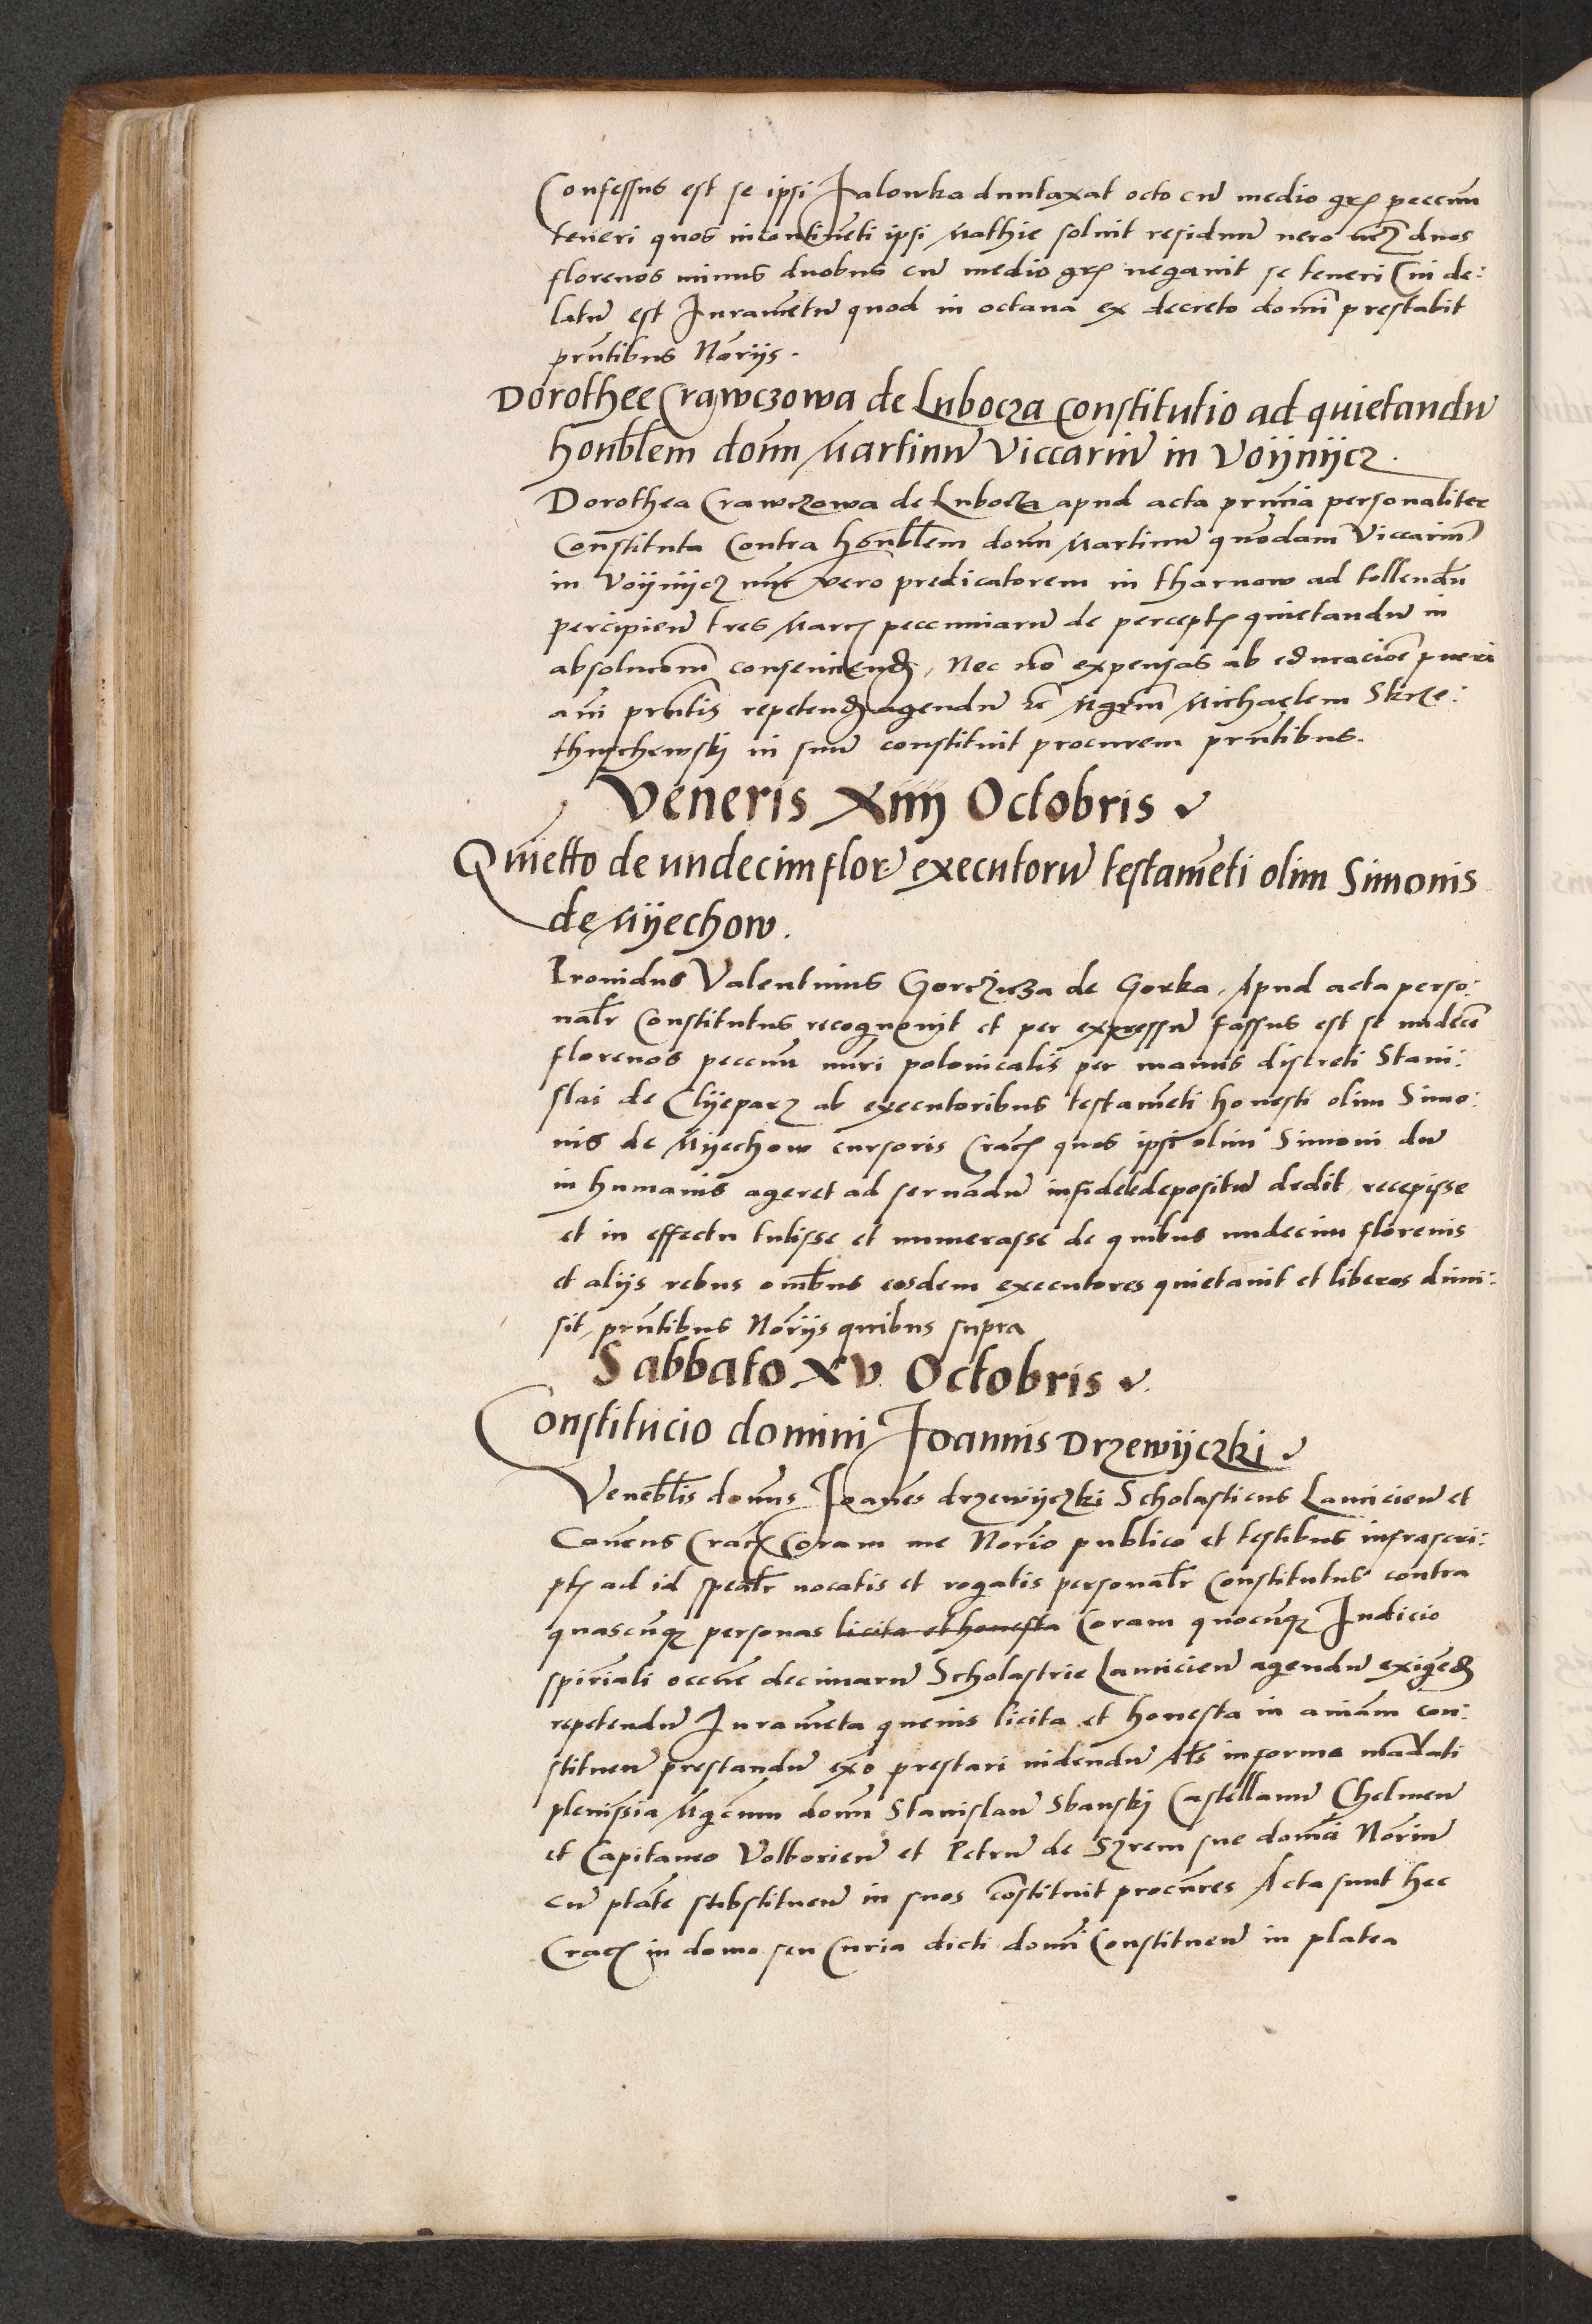 Confessus est se ipsi Jalowka duntaxat octo cũ medio grꝭ peccuñ
teneri quos incontinẽti ipsi Mathie soluit residuũ uero uꝫ duos
florenos minus duobus cũ medio grꝭ negauit se teneri Cui de:
latũ est Juramẽtũ quod in octaua ex decreto domĩ prestabit
prñtibus Nõrijs.
Dorothee Crawczowa de Lubocza Constitutio ad quietandũ
honb̃lem domñ Martinũ Viccariũ in Voijnijcz.
Dorothea Crawczowa de Lubocza apud acta prñcia personaliter
Constituta Contra honb̃lem domñ Martinũ quõdam Viccariũ
in Voijnijcz nũc vero predicatorem in tharnow ad tollendũ
percipieñ tres Marcꝭ peccuniarũ de perceptꝭ quietandũ in
absolucõnẽ consenciendꝭ, Nec nõ expensas ab educaciõe pueri
a ñi prñtis repetendꝭ agendũ zc̃ Mgr̃m Michaelem Skrze:
thuschewskj in suũ constituit procurem prñtibus.
Veneris Xiiij Octobris
Quietto de undecim flor̃ executorũ testamẽti olim Simonis
de Mijechow.
Prouidus Valentinus Gorczicza de Gorka, Apud acta perso:
nalr̃ Constitutus recognouit et per expressũ fassus est se undecẽ
florenos peccuñ nũri polonicalis per manus discreti Stani:
slai de Clijeparz ab executoribus testamẽti honesti olim Simo:
nis de Mijechow cursoris Cracꝭ quos ipse olim Simoni dũ
in humanis ageret ad seruãdũ in fidele depositũ dedit, recepisse
et in effectu tulisse et numerasse de quibus undecim florenis
et alijs rebus omb̃us eosdem executores quietauit et liberos dimi:
sit, prñtibus Nõrijs quibus supra
Sabbato xv Octobris
Constitucio domini Joannis Drzewijczki
Veneb̃lis domñs Joañes drzewijczki Scholasticus Lancicieñ et
Cañcus Cracꝭ Coram me Nõrio publico et testibus infrascri:
ptꝭ ad id spealr̃ uocatis et rogatis personalr̃ Constitutus contra
quascũqꝫ personas licita et honesta Coram quocũqꝫ Judicio
spirãli occñe decimarũ Scholastrie Lancicieñ agendũ exigẽdꝭ
repetendũ Juramẽta queuis licita et honesta in aniãm con:
stitueñ prestandũ exõ prestari uidendũ Als̃ in forma mãdati
plenissĩa Mgcũm domñ Stanislaũ Sbanskj Castellanũ Chelmeñ
et Capitaneo Volborieñ et Petrũ de Szrem sue domĩ Nõriũ
cũ ptãte substitueñ in suos cõstituit procũres Acta sunt hec
Cracꝭ in domo seu Curia dicti domĩ Constitueñ in platea